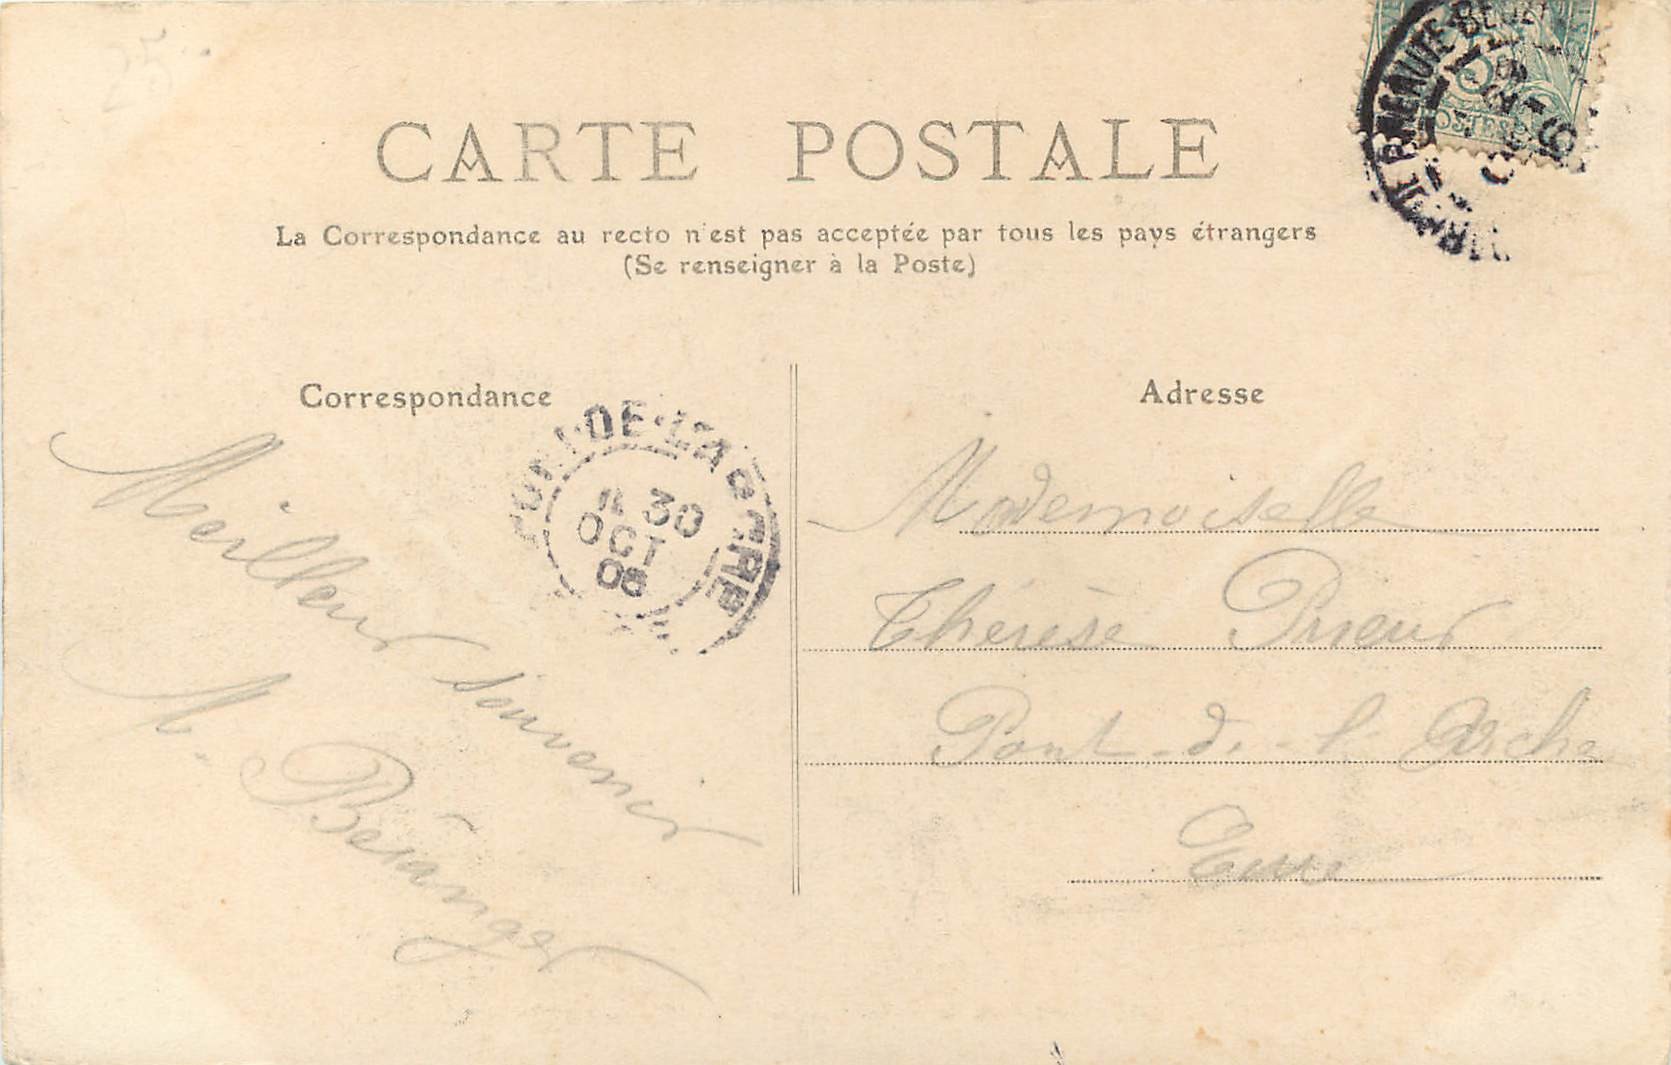 25
CARTE POSTALE
La Correspondance au recto n'est pas acceptée par tous les pays étrangers
(Se renseigner à la Poste)
Correspondance
Adresse
DE-L'ARCHE
30
OCT
POSTES
Meilleur souvenir
M. Béranger
Mademoiselle
Thérèse Prieur
Pont-de-l'Arche
Eure